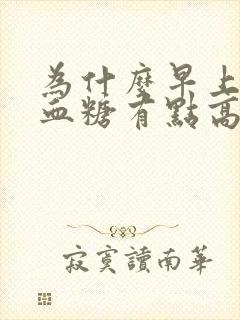 為什麼早上
血糖有點高
寂寞讀南華